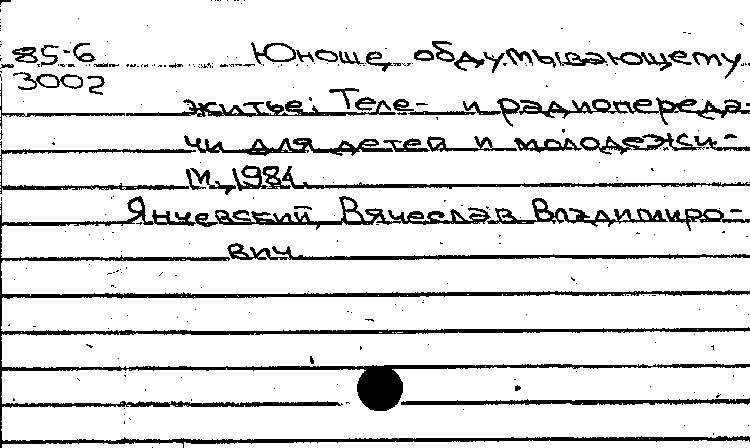 85-6 Юноше, обдумывающему
3002
житье: Теле- и радиопереда-
чи для детей и молодежи.-
М., 1984.
Янчевский, Вячеслав Владимиро-
вич.